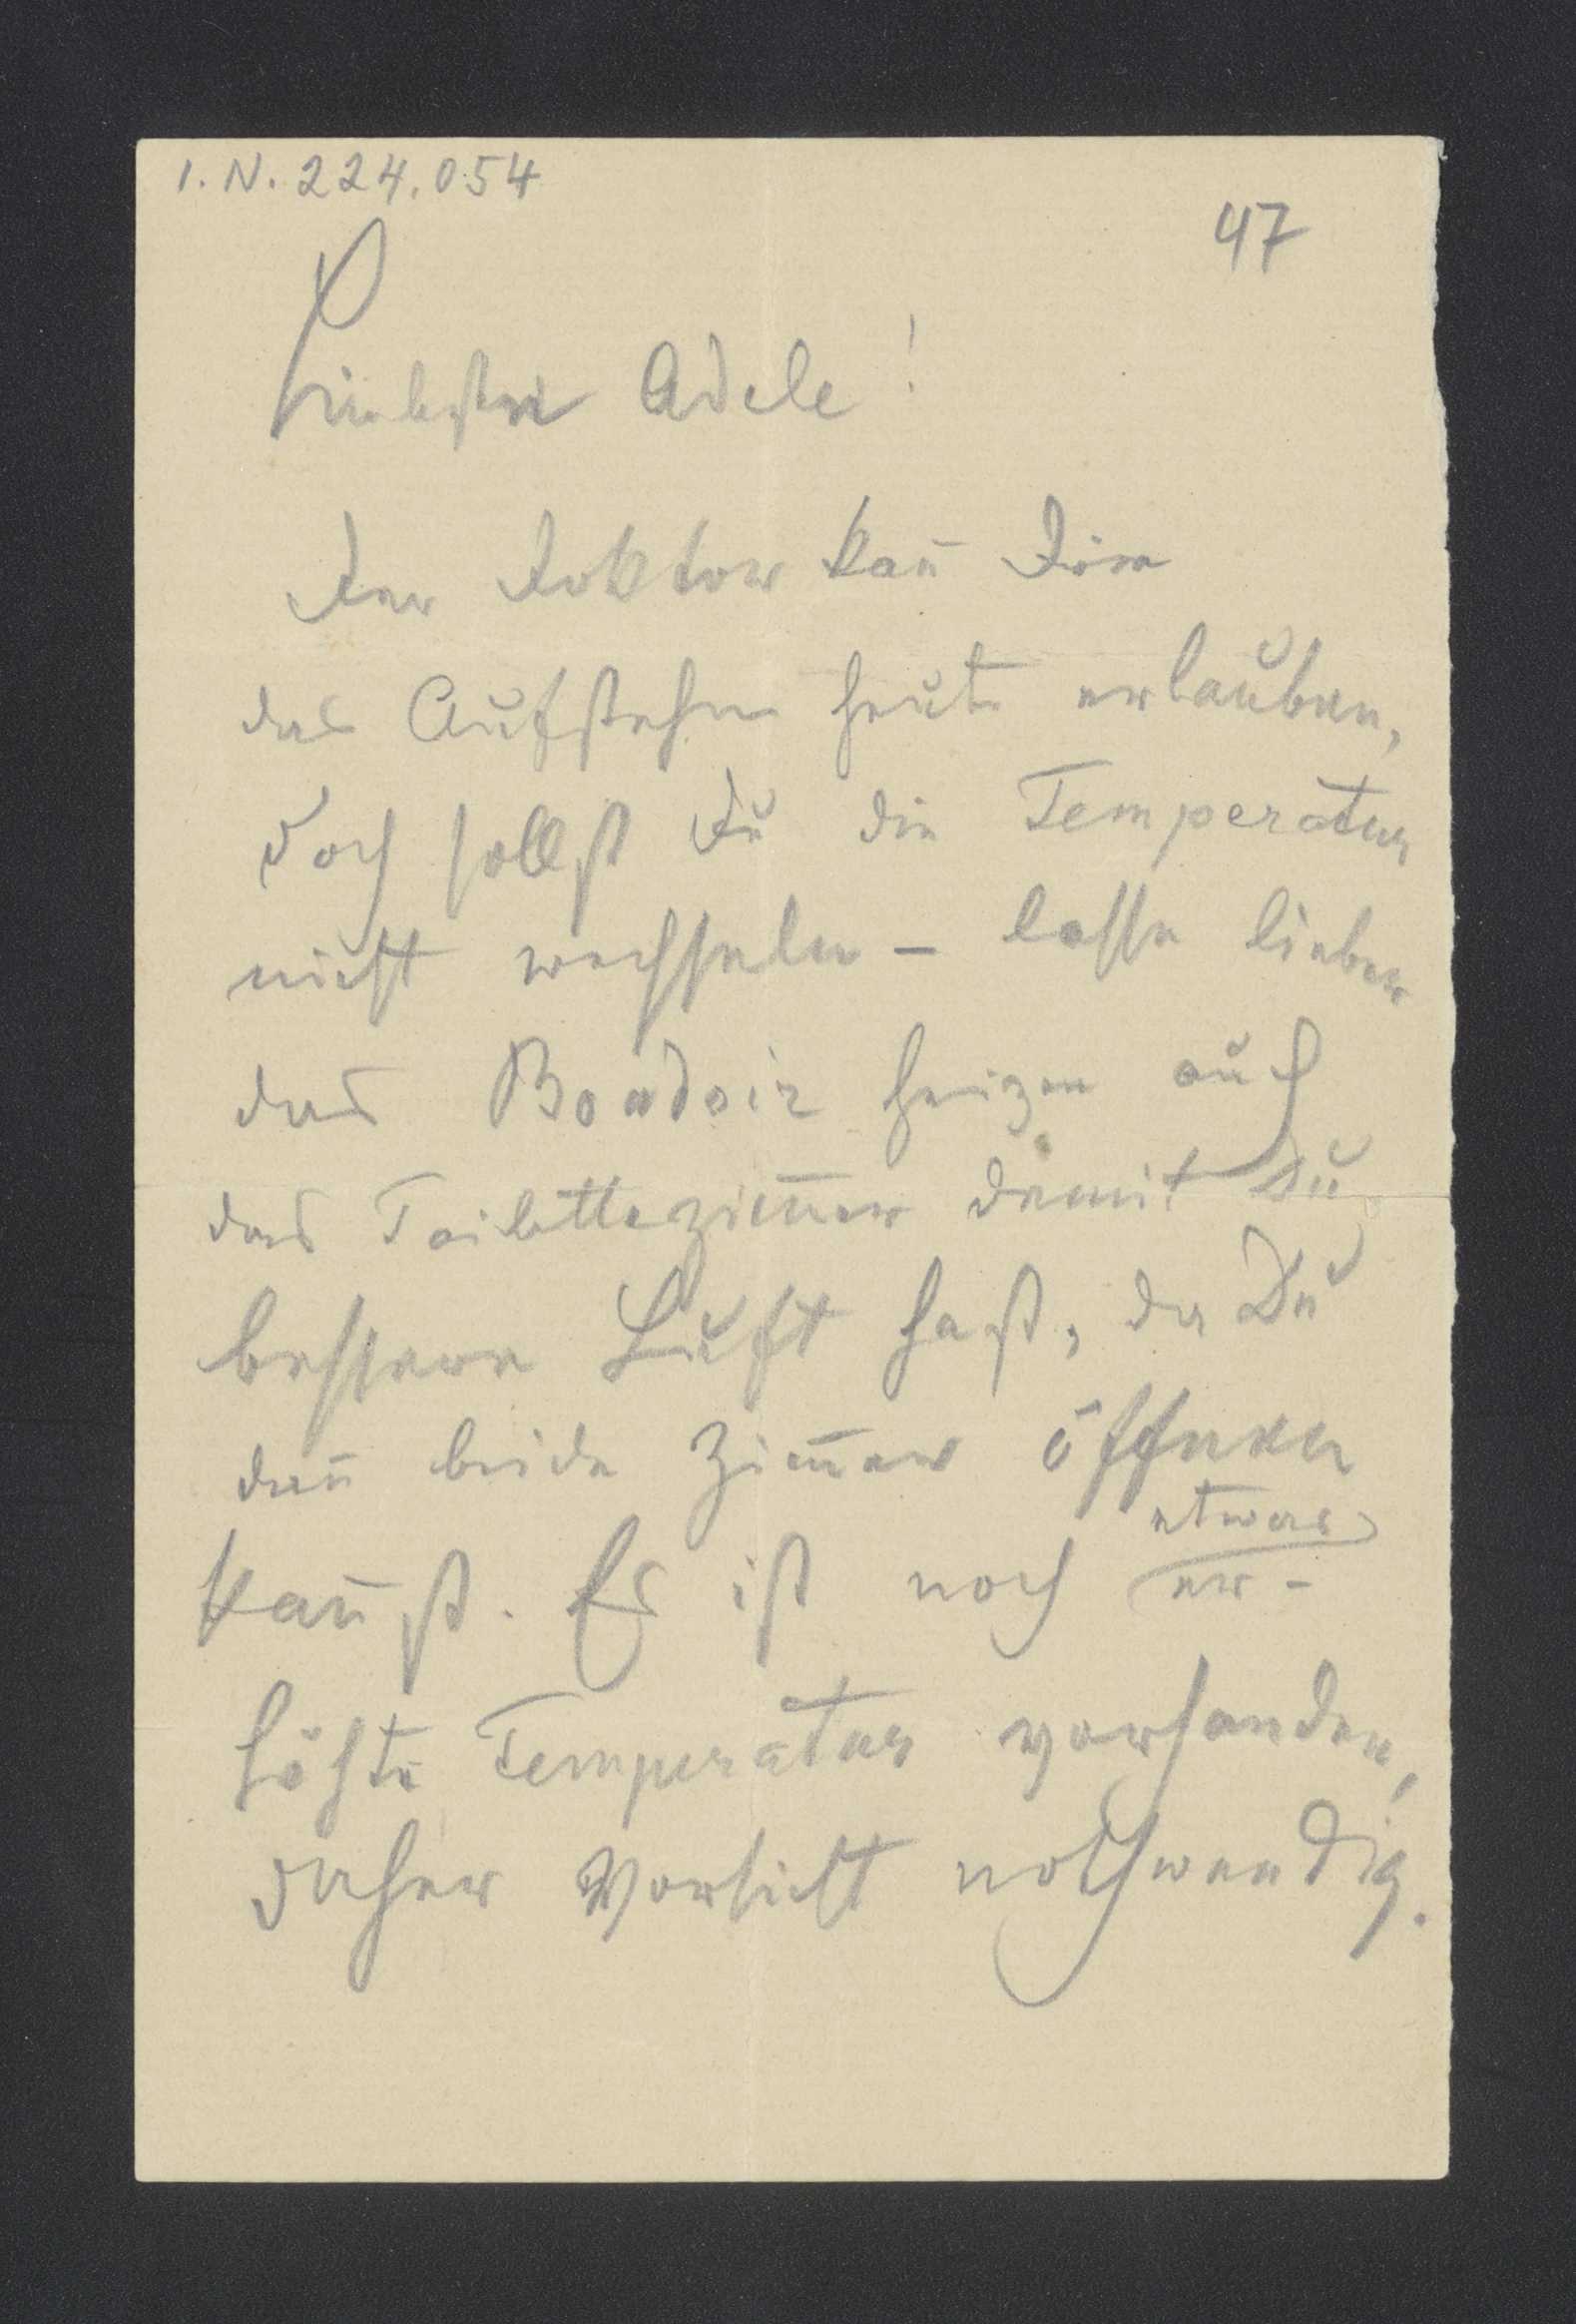 I. N. 224.054
47
Liebste Adele!
Der Doktor kan̄ Dir
das Aufstehn heute erlauben,
doch sollst Du die Temperatur
nicht wechseln – lasse lieber
das Boudoir heizen auch
das Toilettezim̄er damit Du
bessere Luft hast, da Du
dan̄ beide Zim̄er öffnen
kan̄st. Es ist noch etwas er-
höhte Temperatur vorhanden,
daher Vorsicht nothwendig.